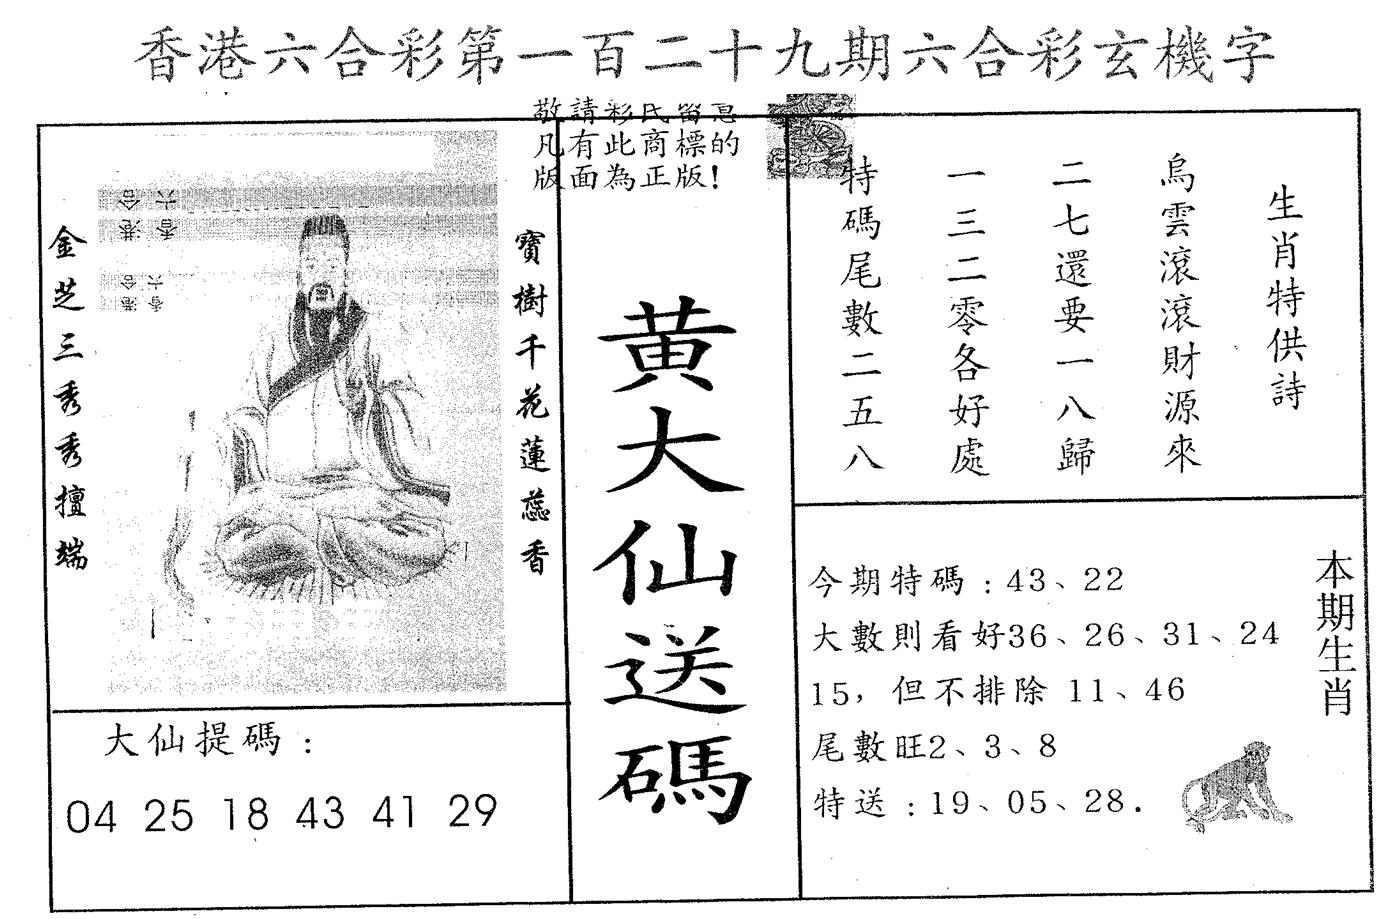 香港六合彩第一百二十九期六合彩玄機字
敬請彩民留意
凡有此商標的
版面為正版！
生肖特供詩
烏雲滾滾財源來
二七還要一八歸
一三二零各好處
特碼尾數二五八
金芝三秀秀擅端
寶樹千花蓮蕊香
六合
香港
六合
香港
黄大仙送碼
本期生肖
今期特碼：43、22
大數則看好36、26、31、24
15，但不排除 11、46
尾數旺2、3、8
特送：19、05、28.
大仙提碼：
04 25 18 43 41 29